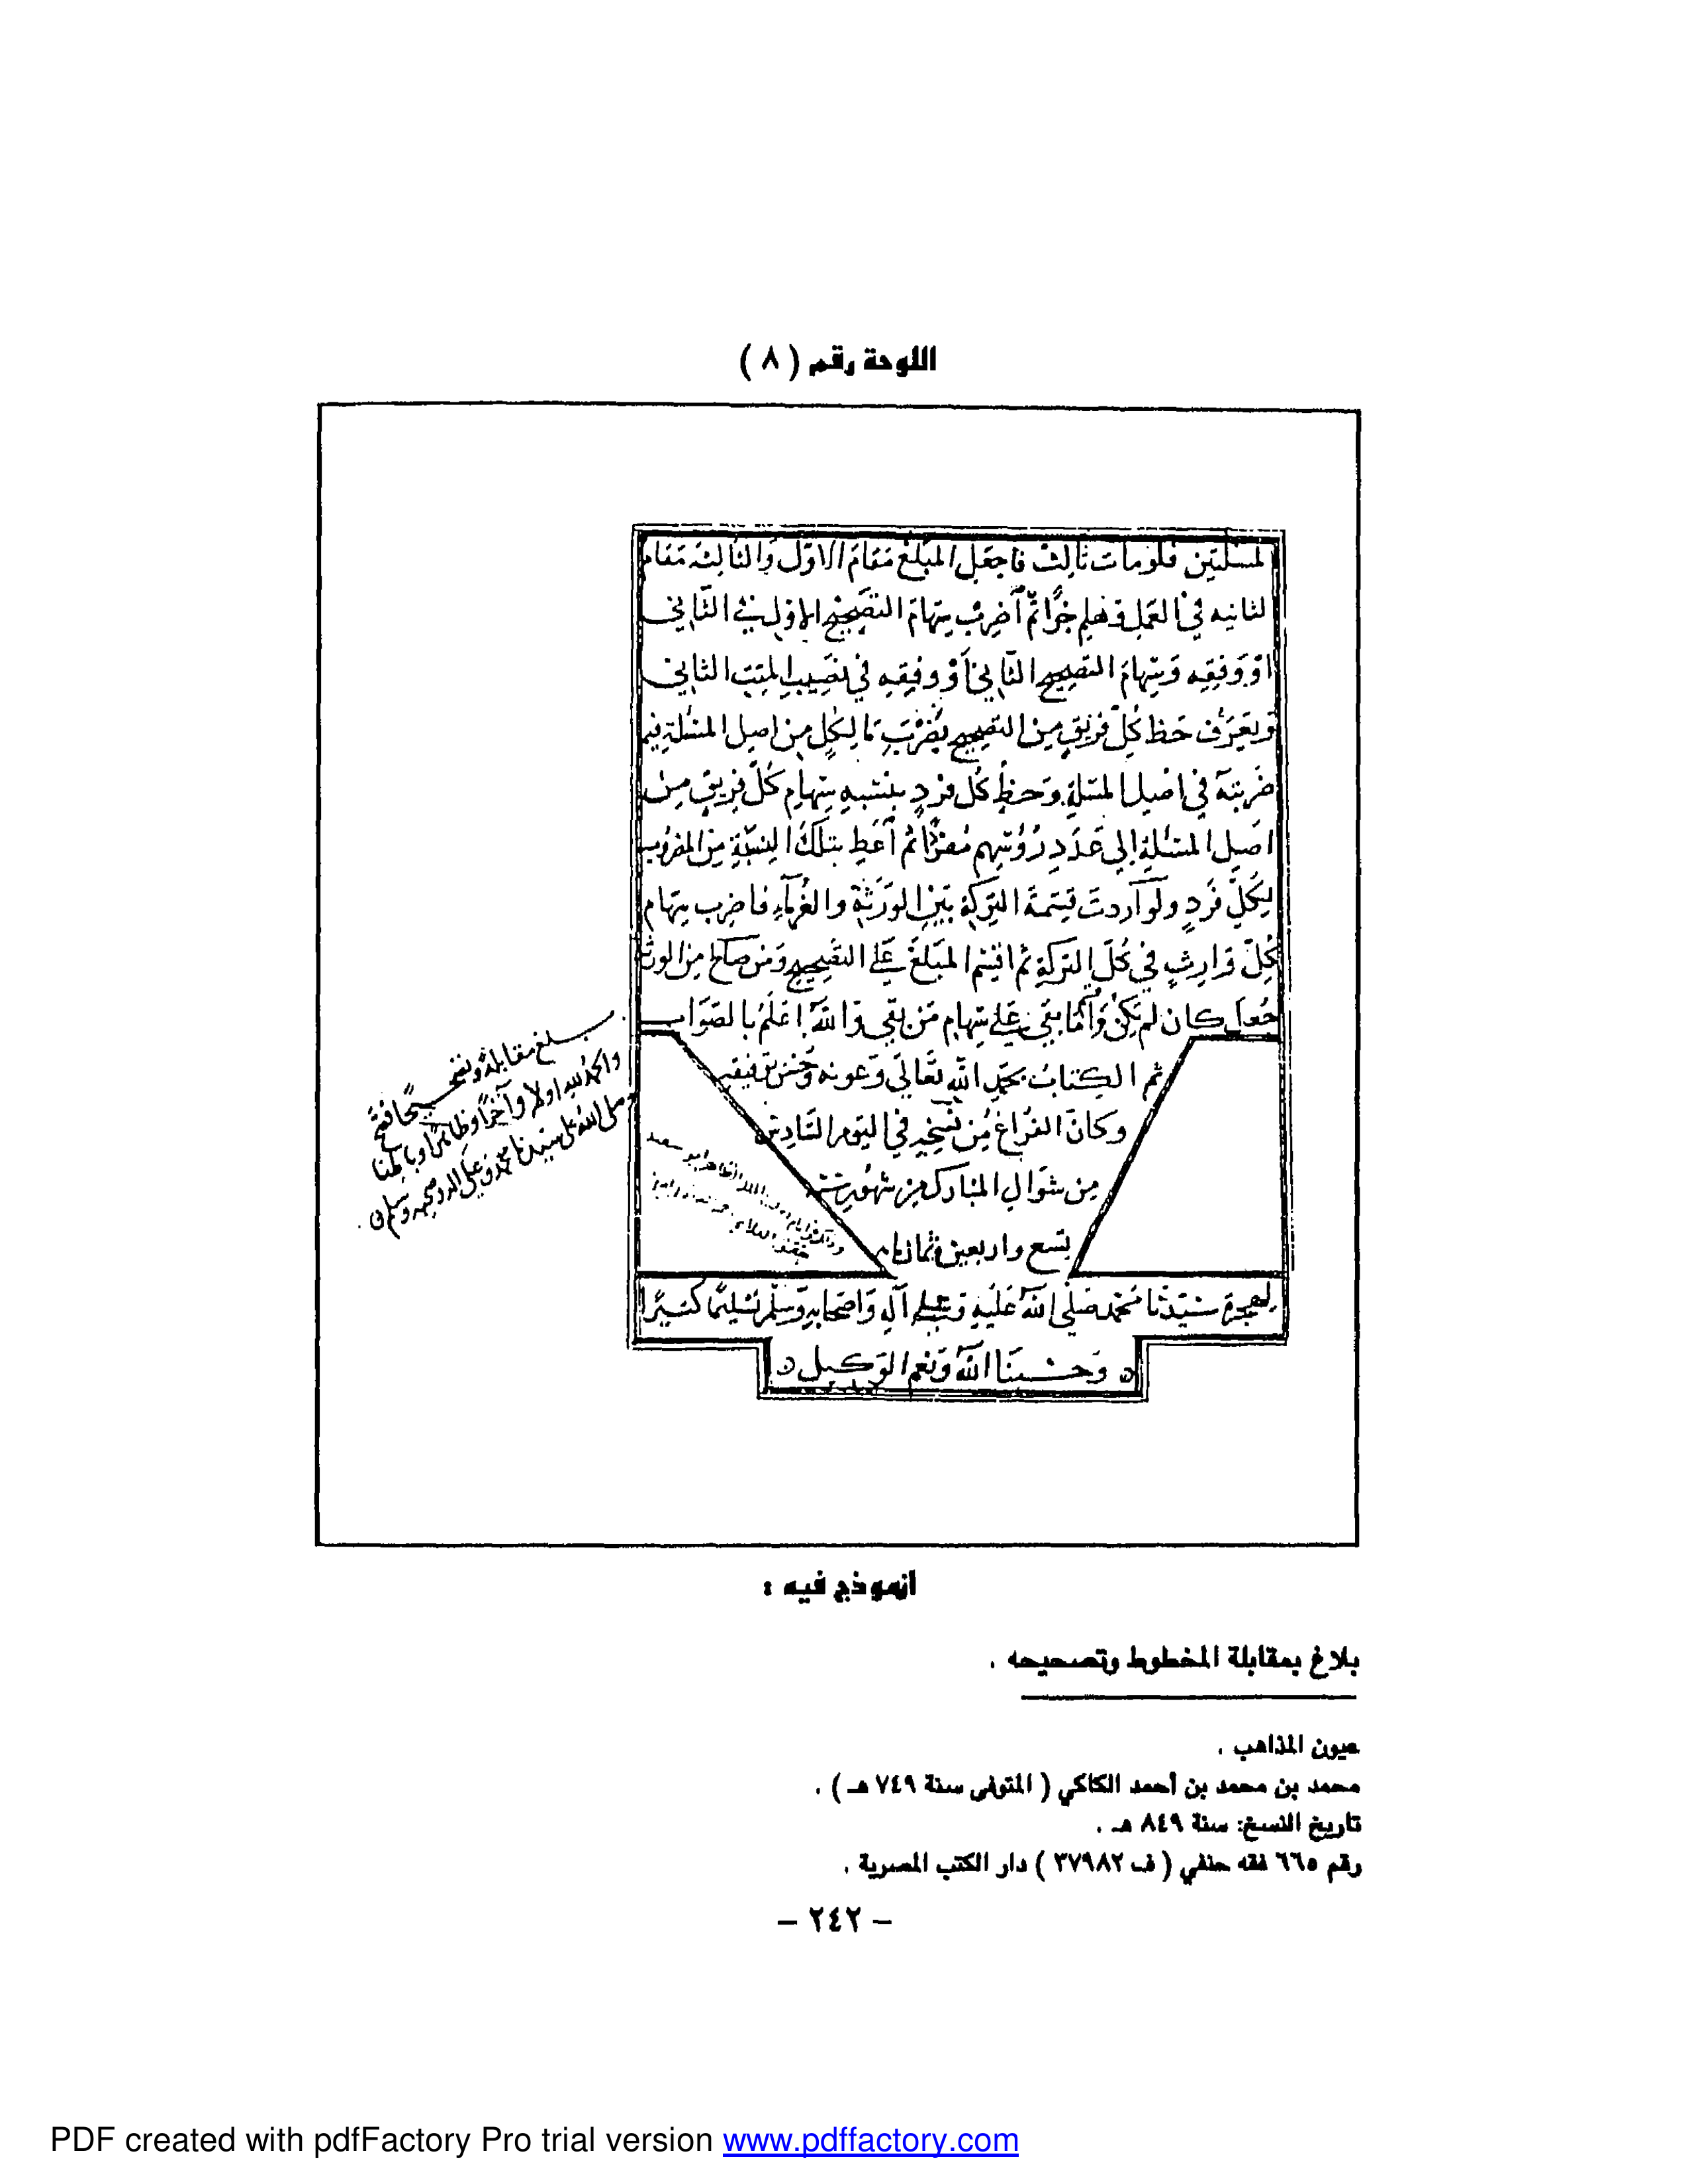 اللوحة رقم ( ٨ )
لمسئلتين فلو مات ثالث فاجعل المبلغ مقام الاول والثالثة مقام
لثانيه في العمل وهلم جرًّا ثم أضرب سهام التصحيح الاول في الثاني
او وفقه وسهام التصحيح الثاني أو وفقه في نصيب الميت الثاني
ويعرف حظ كل فريق من التصحيح بضرب ما لكل من اصل المسئلة فيما
ضربته في اصل المسئلة وحظ كل فرد بنسبه سهام كل فريق من
اصل المسئلة إلى عدد رؤسهم مفردًا ثم أعط بتلك النسبة من المضروب
لكل فرد ولو أردت قسمة التركة بين الورثة والغرماء فاضرب سهام
كل وارث في كل التركة ثم اقسم المبلغ على التصحيح ومن صالح من الورثة
جُعل كان لم يكن واقسم ما بقي على سهام من بقي والله اعلم بالصواب
تم الكتاب بحمد الله تعالى وعونه وحسن توفيقه
وكان الفراغ من نسخه في اليوم السادس
من شوال المبارك من شهور سنة
تسع واربعين وثمان مايه
لهجرة سيدنا محمد صلى الله عليه وعلى آله واصحابه وسلم تسليمًا كثيرًا
وحسبنا الله ونعم الوكيل
بلغ مقابلةً وتصحيحًا
والحمد لله اولا وآخرًا وظاهرًا وباطنا
وصلى الله على سيدنا محمد وعلى اله وصحبه وسلم
انموذج فيه :
بلاغ بمقابلة المخطوط وتصحيحه .
عيون المذاهب .
محمد بن محمد بن أحمد الكاكي ( المتوفى سنة ٧٤٩ هـ ) .
تاريخ النسخ: سنة ٨٤٩ هـ .
رقم ٦٦٥ فقه حنفي ( ف ٣٧٩٨٢ ) دار الكتب المصرية .
– ٢٤٢ –
PDF created with pdfFactory Pro trial version www.pdffactory.com